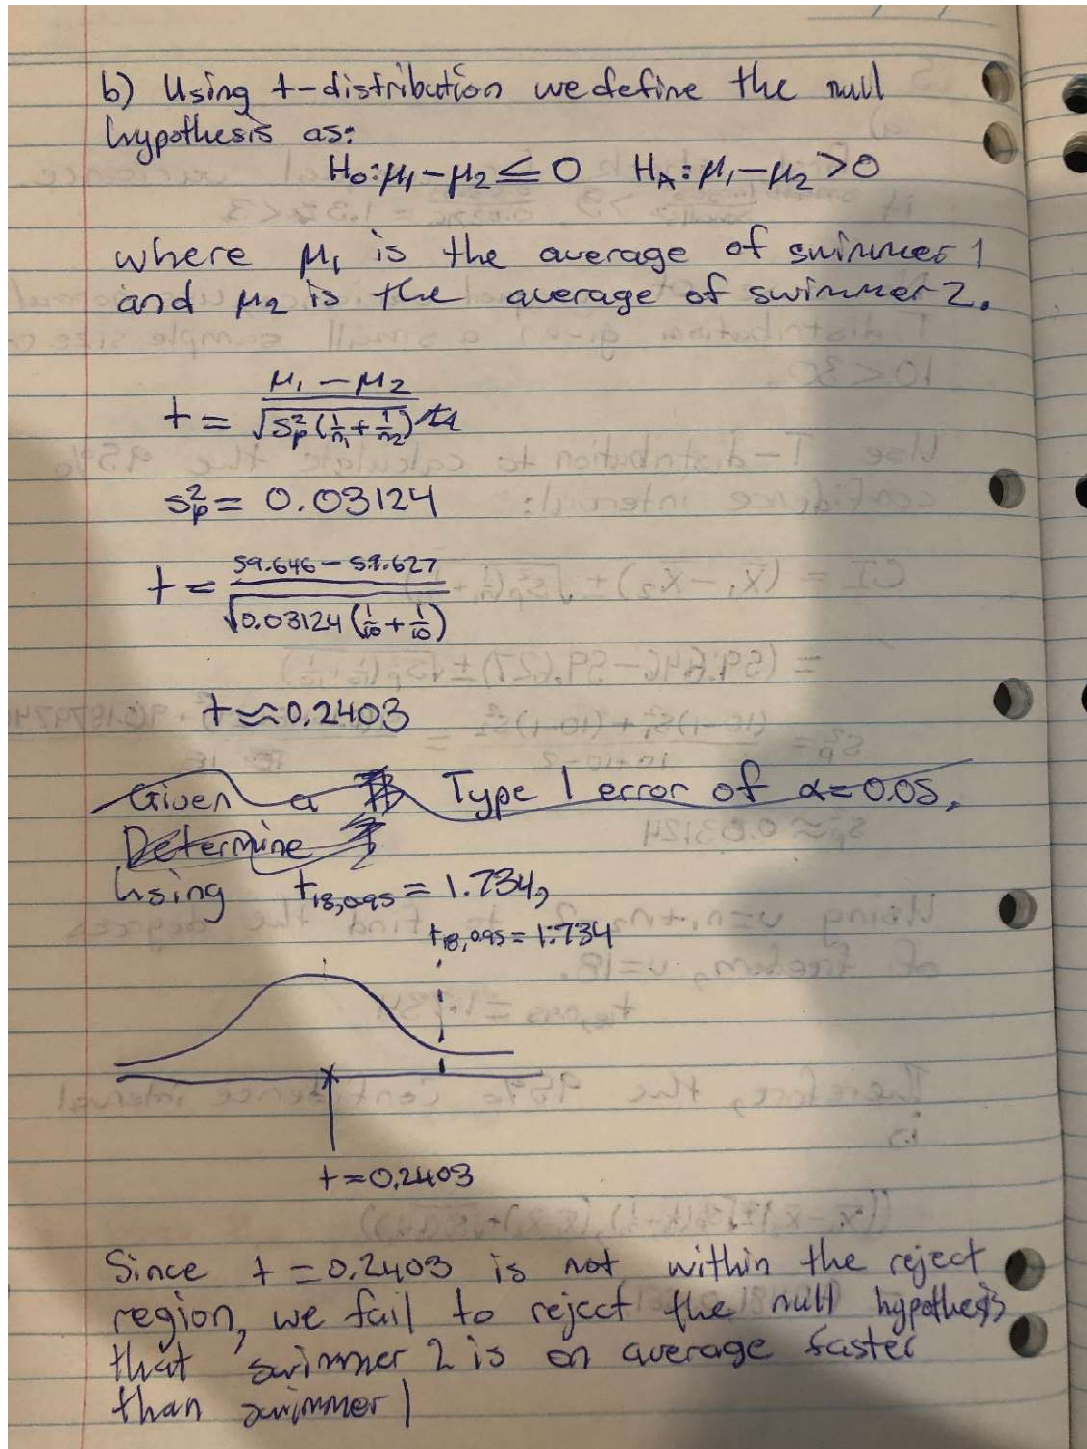 b) Using t-distribution we define the null
hypothesis as:
H₀: μ₁ - μ₂ ≤ 0    H_A: μ₁ - μ₂ > 0
where μ₁ is the average of swimmer 1
and μ₂ is the average of swimmer 2.
t = (μ₁ - μ₂) / √(s²ₚ (1/n₁ + 1/n₂))
s²ₚ = 0.03124
t = (59.646 - 59.627) / √(0.03124 (1/10 + 1/10))
t ≈ 0.2403
Given a Type 1 error of α = 0.05,
Determine
Using t₁₈,₀.₉₅ = 1.734,
t₁₈,₀.₉₅ = 1.734
t = 0.2403
Since t = 0.2403 is not within the reject
region, we fail to reject the null hypothesis
that swimmer 2 is on average faster
than swimmer 1